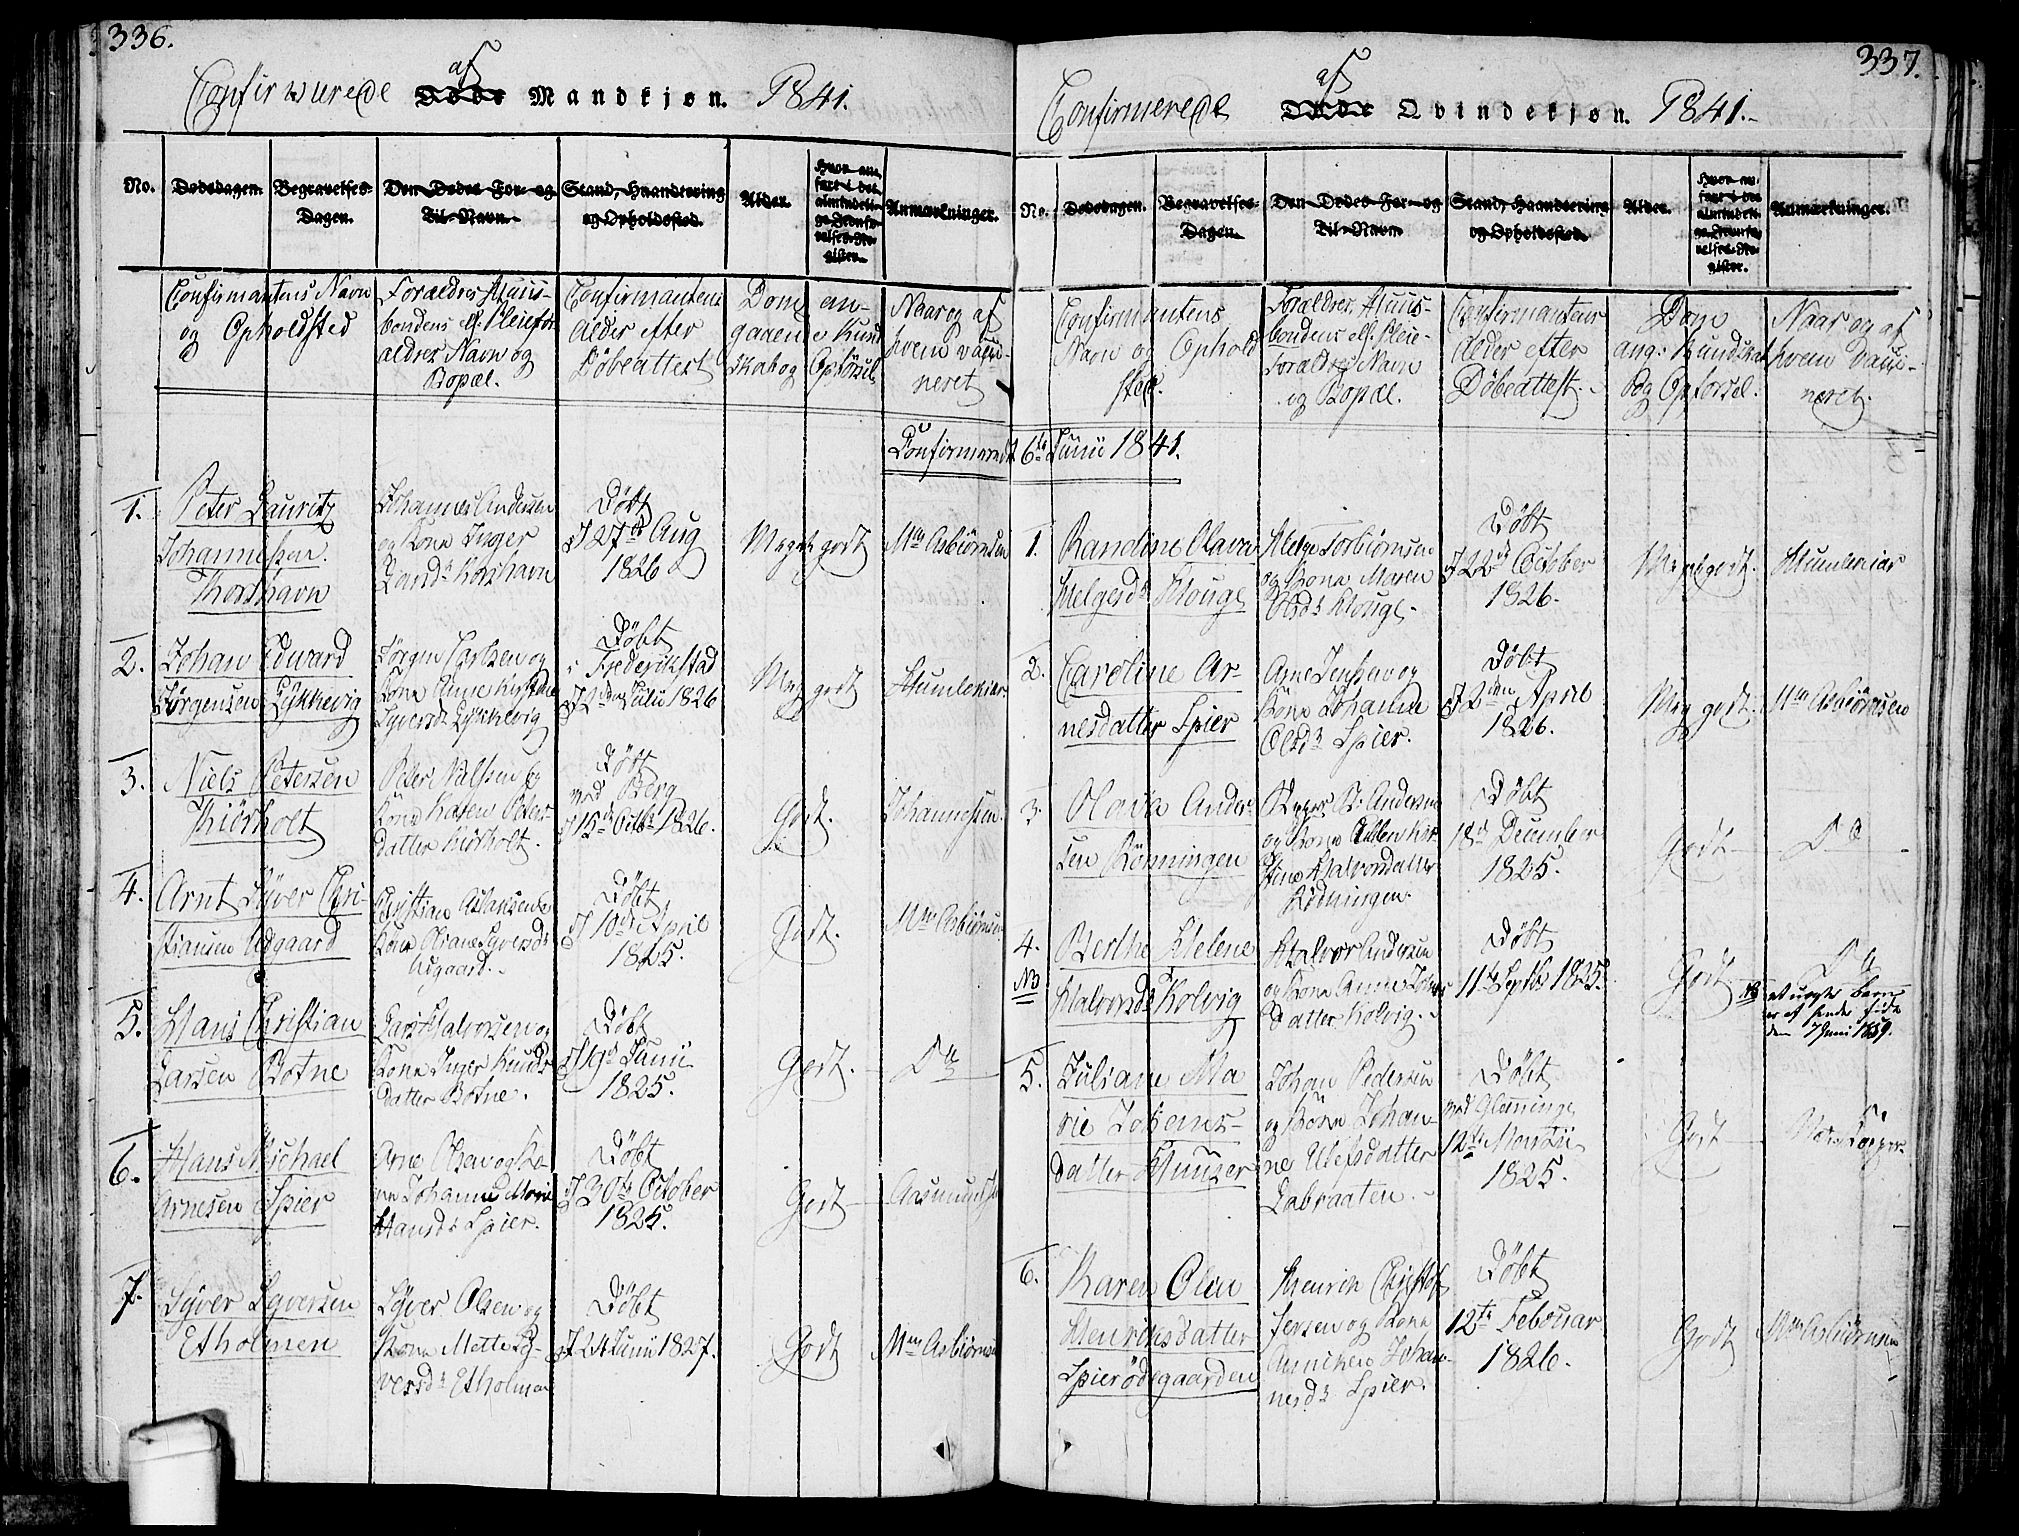 336.
Confirmerede af Døde Mandkjøn. 1841.
No.
Dødsdagen.
Begravelses-
Dagen.
Den Dødes For- og
Til-Navn.
Stand, Haandtering
og Opholdssted.
Alder.
Hvor an-
ført i det
almindeli-
ge Jevnfø-
relses-Re-
gister.
Anmærkninger.
Confirmantens Navn
og Opholdsted
Forældres, Huus-
bondens el. Pleiefor
ældres Navn og
Bopæl.
Confirmantens
Alder efter
Døbeattest
Dom an-
gaaende Kund
skab og Opførsel
Naar og af
hvem vacci-
neret
Confirmerede 6te Junii 1841.
1.
Peter Lauritz
Johannessen
Thorshavn
Johannes Andersen
og Kone Inger
Larsdr Korshavn
Døbt
d 27de Aug
1826
Meget godt
Mr Asbiørnsen
2.
Johan Edward
Jørgensen Lykkevig
Jørgen Carlsen og
Kone Anne Kirstine
Syversdr Lykkevig
Døbt
i Frederikstad
d 2den Julii 1826
Meg godt
Humlekiær
3.
Niels Petersen
Kiørholt
Peter Nilssen og
Kone Karen Peters-
datter Kiørholt.
Døbt
ved Berg
d 15de Octbr 1826.
Godt.
Johannessen
4.
Arnt Syver Chri-
stiansen Udgaard
Christian Aslaksen &
Kone Oliane Syversdr
Udgaard.
Døbt
d 10de April
1825.
Godt.
Mr Asbiørnsen
5.
Hans Christian
Larsen Botne
Lars Halvorsen og
Kone Inger Knuds
datter Botne.
Døbt
d 19de Junii
1825.
Godt.
Do
6.
Hans Michael
Arnesen Spier
Arne Olsen og Ko-
ne Johanne Marie
Hansdr Spier.
Døbt
d 30te October
1825.
Godt
Aasmundsen
7.
Syver Syversen
Etholmen
Syver Olsen og
Kone Mette Sy-
versdr Etholmen
Døbt
d 24 Junii 1827.
Godt
Mr Asbiørnsen
337.
Confirmerede af Døde Qvindekjøn. 1841.
No.
Dødsdagen.
Begravelses-
Dagen.
Den Dødes For- og
Til-Navn
Stand, Haandtering
og Opholdssted.
Alder.
Hvor an-
ført i det
almindeli-
ge Jevnfø-
relses-Re-
gister.
Anmærkninger.
Confirmantens
Navn og Ophold
sted.
Forældres, Huus-
bondens el. Pleie-
forældres Navn
og Bopæl.
Confirmantens
Alder efter
Døbeattest.
Dom
ang: Kundskab
og Opførsel.
Naar og af
hvem vacci-
neret.
1.
Randine Olava
Helgesdr Klouge
Helge Torbiørnsen
og Kone Maren
Olsdr Klouge.
Døbt
d 22de October
1826.
Meget godt.
Humlekiær
2.
Caroline Ar-
nesdatter Spier
Arne Jensen og
Kone Johanne
Olsdr Spier.
Døbt
d 2den April
1826.
Meg godt.
Mr Asbiørnsen
3.
Olava Ander-
sen Rønningen
og Kone Ellen Kir-
stine Halvorsdatter
Rødningen.
Døbt
18de December
1825.
Godt
Do
4.
NB
Berthe Helene
Halvorsdr Kolvig
Halvor Andersen
og Kone Anne Johns
datter Kolvig.
Døbt
11te Septbr 1825.
Godt
Do
NB at uægte Barn
er af hende født
den 7 Juni 1839.
5.
Juliane Ma
rie Johans-
datter Huuser
Johan Pedersen
og Kone Johan-
ne Ulefsdatter
Labraaten.
Døbt
ved Glemminge
12te Martii
1825.
Godt
6.
Karen Olea
Henriksdatter
Spierødegaarden
Henrik Christof
fersen og Kone
Anniken Johan-
nesdr Spier.
Døbt
12te Februar
1826.
Godt
Mr Asbiørnsen